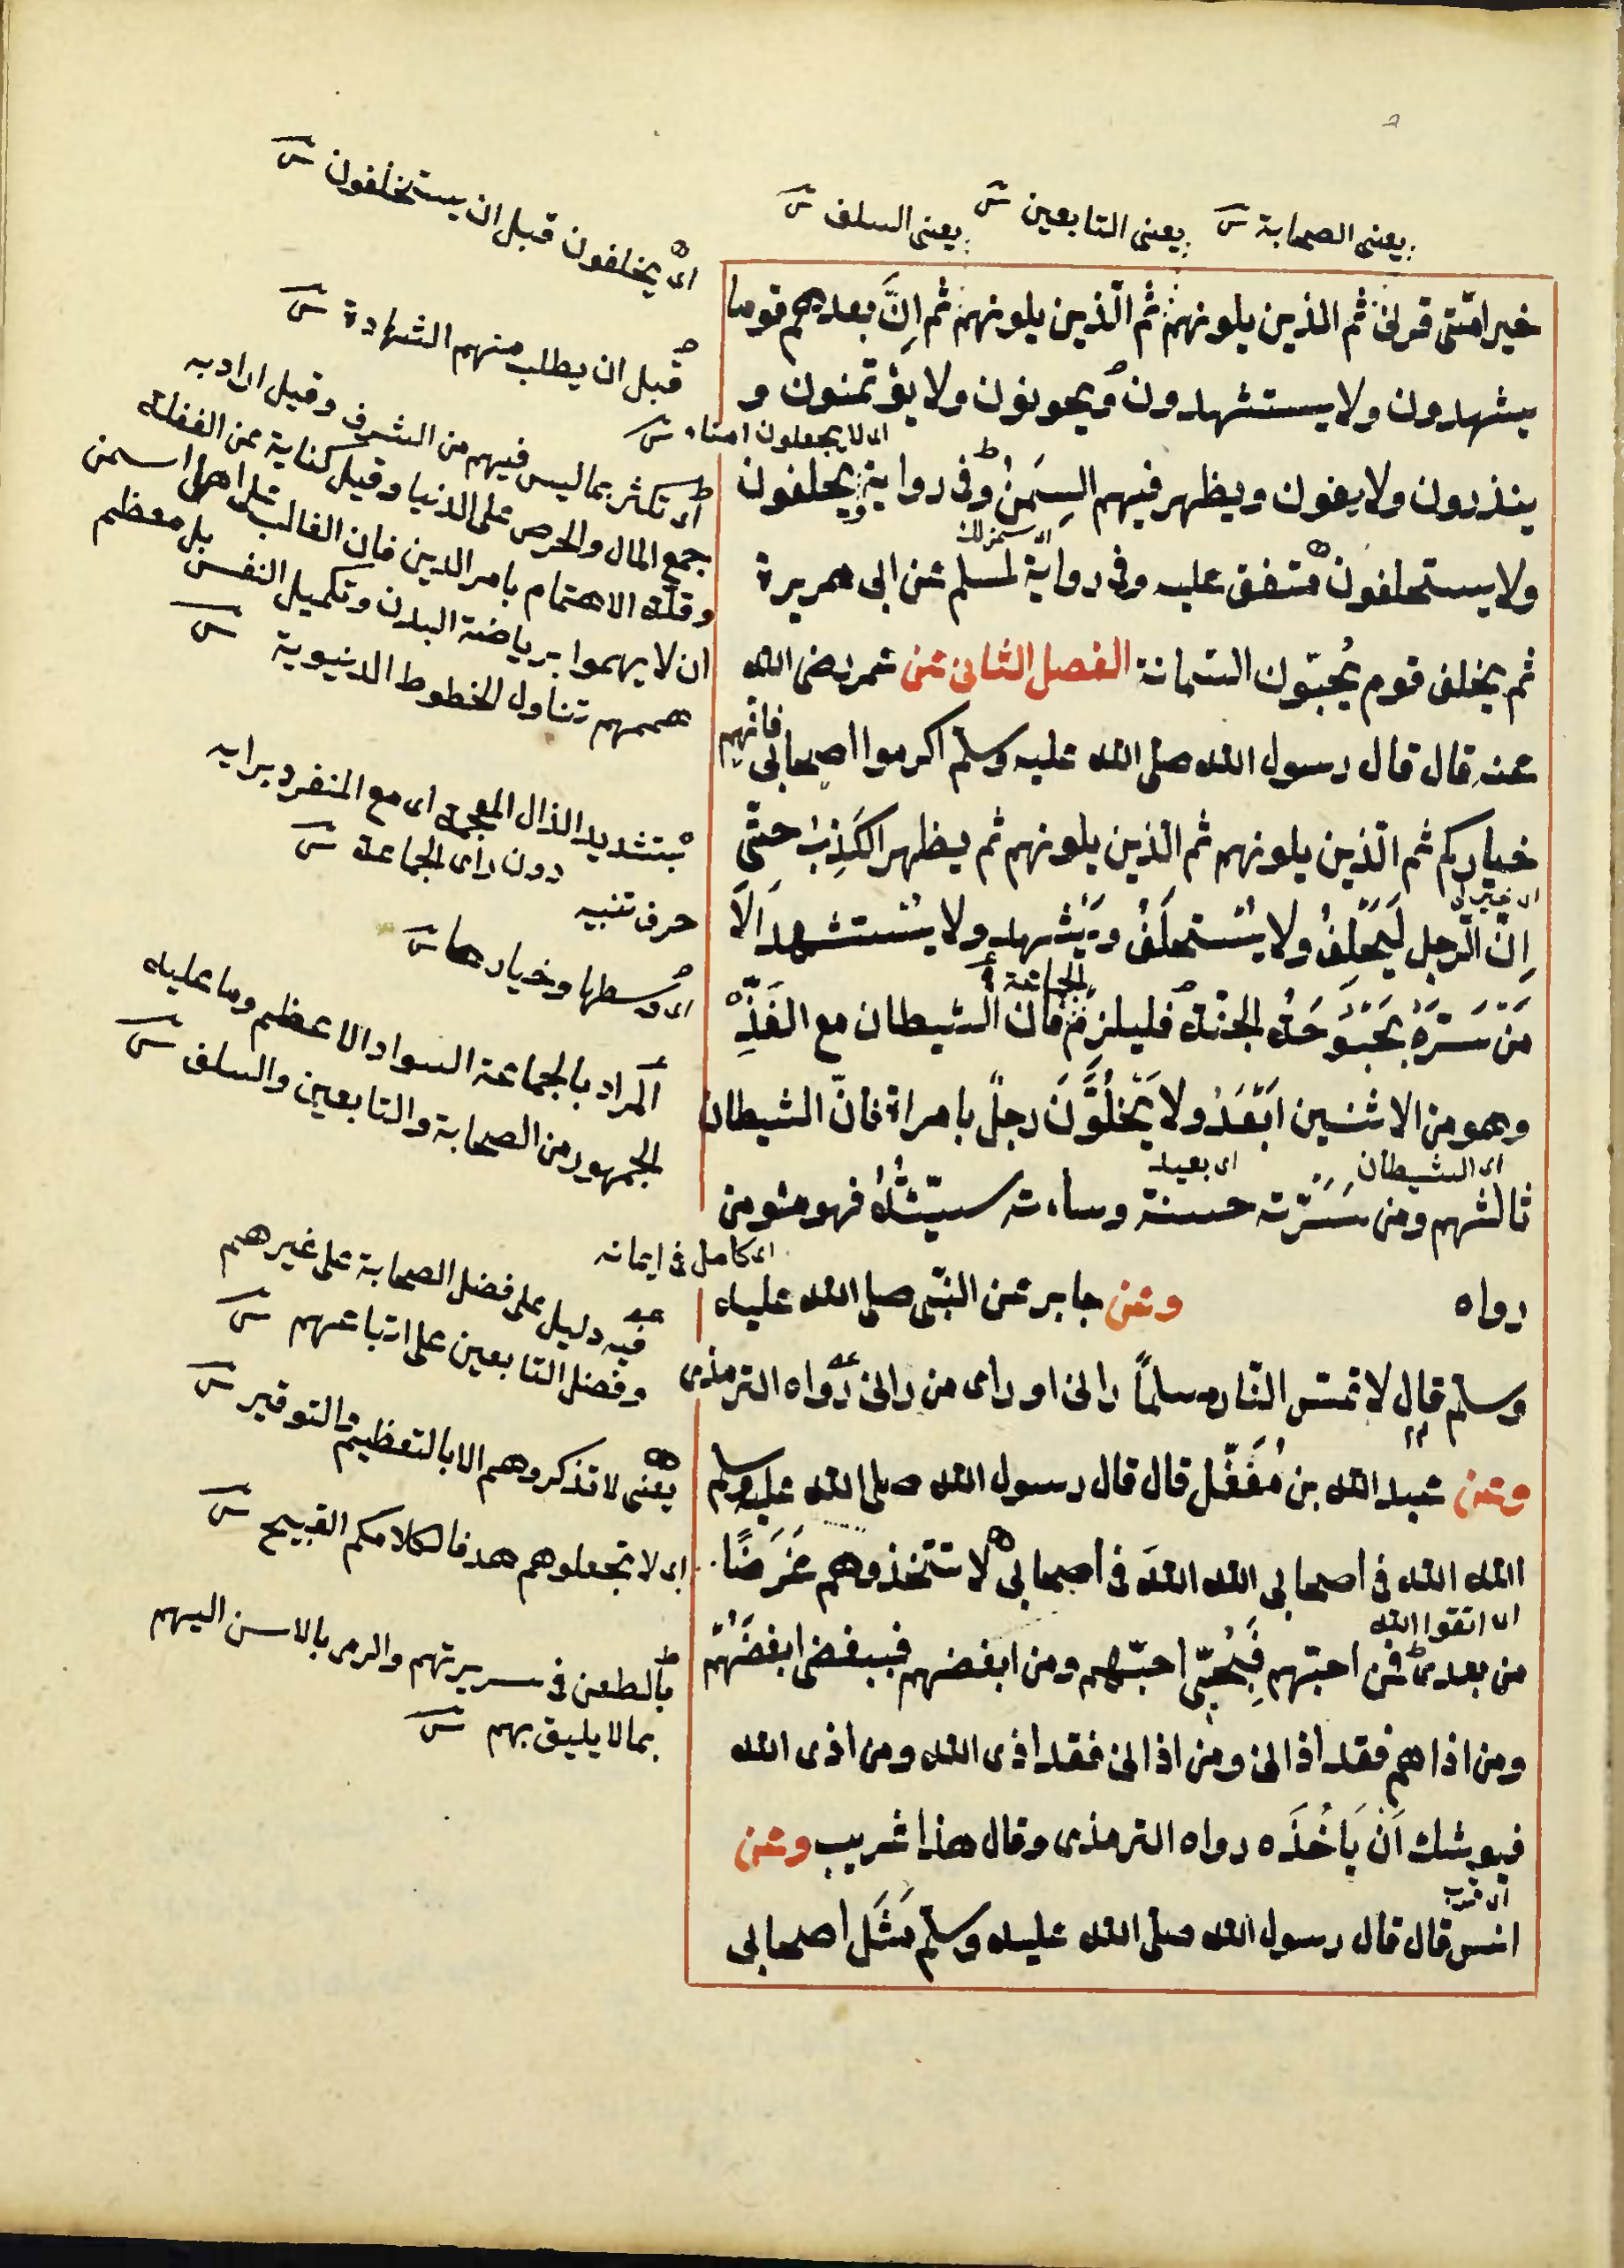 يعنى الصحابة ش
يعنى التابعين ش
يعنى السلف ش
خير امّتى قرنى ثم الذين يلونهم ثم الّذين يلونهم ثم اِنَّ بعدهم قوما
يشهدون ولا يستشهدون ويخونون ولا يؤتمنون و
اى لا يجعلون امناء ش
ينذرون ولا يفون ويظهر فيهم السِمَنُ وفى رواية ويحلفون
ولا يستحلفون متفق عليه وفى رواية لمسلم عن ابى هريرة
ثم يخلف قوم يُحبّون السّمانة الفصل الثانى عن عمر رضى الله
عنه قال قال رسول الله صلى الله عليه وسلم اكرموا اصحابى فانّهم
خياركم ثم الّذين يلونهم ثم الّذين يلونهم ثم يظهر الكَذِبُ حتّى
اِنّ الرّجل لَيَحْلِفُ ولا يُسْتحلَفُ ويَشهد ولا يُسْتشهد اَلَا
مَنْ سَرَّهُ بُحْبُوحَةُ الجنّة فليلزم الجماعة فانّ الشيطان مع الفَذِّ
وهو من الاثنين اَبْعَدُ ولا يَخْلُوَنَّ رجلٌ بامراة فانّ الشيطان
اى الشيطان
اى بعيد
ثالثهم ومن سَرَّته حسنة وساءته سيّئتُهُ فهو مؤمن
اى كامل فى ايمانه
رواه
وعن جابر عن النبّى صلى الله عليه
وسلم قال لا تمسّ النّار مسلماً رانى او راى من رانى رواه الترمذى
وعن عبد الله بن مُغَفَّل قال قال رسول الله صلى الله عليه وسلم
الله الله فى اصحابى الله اللهَ فى اصحابى لا تتّخذوهم غَرَضًا
اى اتقوا الله
من بعدى فمن احبّهم فَبِحُبّى احبّهم ومن ابغضهم فببغضى ابغضَهُم
ومن اذاهم فقد اذانى ومن اذانى فقد اذى الله ومن اذى الله
فيوشك اَنْ يَاْخُذَه رواه الترمذى وقال هذا غريب وعن
اى قرب
انس قال قال رسول الله صلى الله عليه وسلم مَثَل اصحابى
اى يخلفون قبل ان يستخلفون ش
قبل ان يطلب منهم الشهادة ش
اى تكثر بما ليس فيهم من الشرف وقيل اراد به
جمع المال والحرص على الدنيا وقيل كناية عن الغفلة
وقلة الاهتمام بامر الدين فان الغالب على اهل السمن
ان لا يهموا برياضة البدن وتكميل النفس بل معظم
هممهم تناول الخطوط الدنيوية ش
بتشديد الذال المعجمة اى مع المنفرد برايه
دون راى الجماعة ش
حرف تنبيه
اى وسطها وخيارها ش
المراد بالجماعة السواد الاعظم وما عليه
الجمهور من الصحابة والتابعين والسلف ش
فيه دليل على فضل الصحابة على غيرهم
وفضل التابعين على اتباعهم ش
يعنى لا تذكروهم الا بالتعظيم والتوقير ش
اى لا تجعلوهم هدفا لكلامكم القبيح ش
بالطعن فى سريرتهم والرمى بالاسن اليهم
بما لا يليق بهم ش